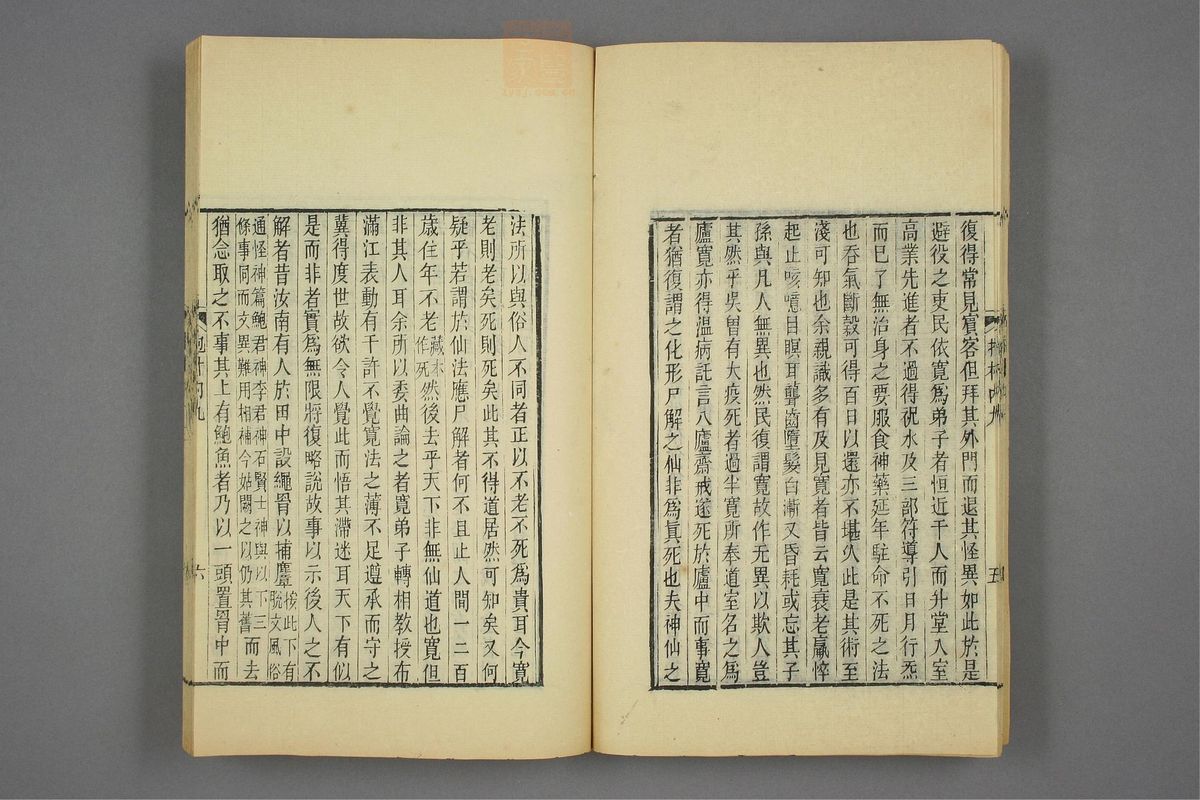 復得常見賓客但拜其外門而退其怪異如此於是
避役之吏民依寬爲弟子者恒近千人而升堂入室
高業先進者不過得祝水及三部符導引日月行炁
而已了無治身之要服食神藥延年駐命不死之法
也吞氣斷穀可得百日以還亦不堪久此是其術至
淺可知也余親識多有及見寬者皆云寬衰老羸悴
起止咳噫目瞑耳聾齒墮髮白漸又昏耗或忘其子
孫與凡人無異也然民復謂寬故作无異以欺人豈
其然乎吳曽有大疫死者過半寬所奉道室名之爲
廬寬亦得溫病託言入廬齋戒遂死於廬中而事寬
者猶復謂之化形尸解之仙非爲眞死也夫神仙之
五
法所以與俗人不同者正以不老不死爲貴耳今寬
老則老矣死則死矣此其不得道居然可知矣又何
疑乎若謂於仙法應尸解者何不且止人間一二百
歲住年不老藏本作死然後去乎天下非無仙道也寬但
非其人耳余所以委曲論之者寬弟子轉相教授布
滿江表動有千許不覺寬法之薄不足遵承而守之
冀得度世故欲令人覺此而悟其滯迷耳天下有似
是而非者實爲無限將復略說故事以示後人之不
解者昔汝南有人於田中設繩罥以捕麞按此下有脫文風俗
通怪神篇鮑君神李君神石賢士神與以下三條事同而文異難用相補今姑闕之以仍其舊而去
猶念取之不事其上有鮑魚者乃以一頭置罥中而
六